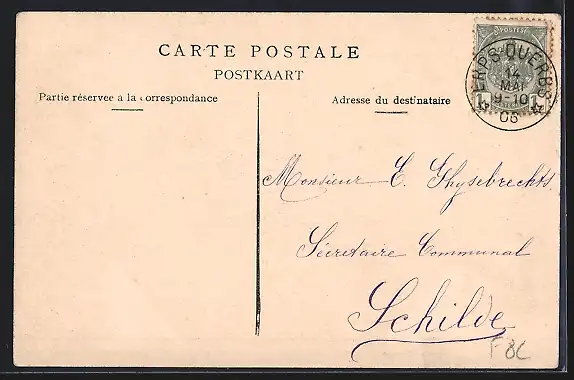 CARTE POSTALE
POSTKAART
Partie réservee a la correspondance
Adresse du destinataire
ERPS-QUERBS
14
MAI
9-10
1
1
Monsieur E. Ghysebrechts
Sécretaire Communal
Schilde
F 8C